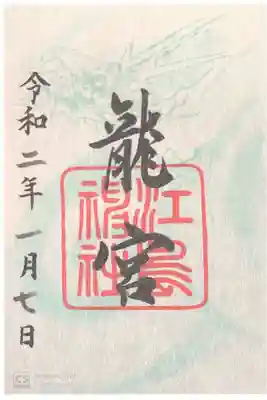 龍宮
江島神社
令和二年一月七日
CS